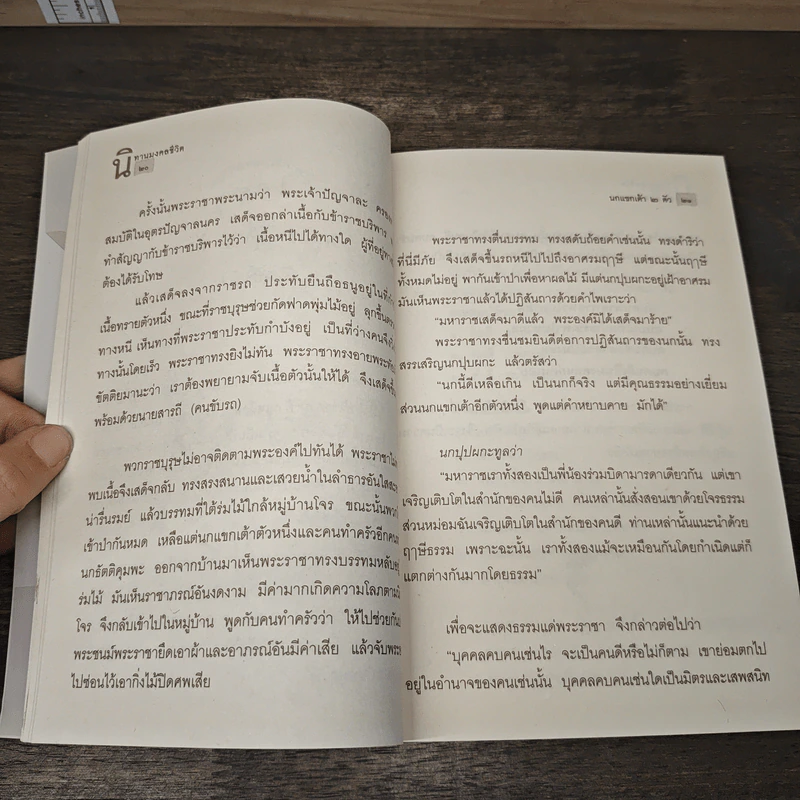 นิทานมงคลชีวิต
๒๐
ครั้งนั้นพระราชาพระนามว่า พระเจ้าปัญจาละ
สมบัติในอุตรปัญจาลนคร เสด็จออกล่าเนื้อกับข้าราชบริพาร
ทำสัญญากับข้าราชบริพารไว้ว่า เนื้อหนีไปได้ทางใด
ต้องได้รับโทษ
แล้วเสด็จลงจากราชรถ ประทับยืนถือธนูอยู่ในที่
เนื้อทรายตัวหนึ่ง ขณะที่ราชบุรุษช่วยกัดฟาดพุ่มไม้อยู่
ทางหนี เห็นทางที่พระราชาประทับกำบังอยู่ เป็นที่ว่างคนจึง
ทางนั้นโดยเร็ว พระราชาทรงยิงไม่ทัน พระราชาทรงอาย
ขัตติยมานะว่า เราต้องพยายามจับเนื้อตัวนั้นให้ได้ จึงเสด็จ
พร้อมด้วยนายสารถี (คนขับรถ)
พวกราชบุรุษไม่อาจติดตามพระองค์ไปทันได้ พระราชา
พบเนื้อจึงเสด็จกลับ ทรงสรงสนานและเสวยน้ำในลำธารอัน
น่ารื่นรมย์ แล้วบรรทมที่ใต้ร่มไม้ใกล้หมู่บ้านโจร ขณะนั้น
เข้าป่ากันหมด เหลือแต่นกแขกเต้าตัวหนึ่งและคนทำครัวอีก
นกธัตติคุมพะ ออกจากบ้านมาเห็นพระราชาทรงบรรทมหลับ
ร่มไม้ มันเห็นราชาภรณ์อันงดงาม มีค่ามากเกิดความโลภ
โจร จึงกลับเข้าไปในหมู่บ้าน พูดกับคนทำครัวว่า ให้ไปช่วยกัน
พระชนม์พระราชายึดเอาผ้าและอาภรณ์อันมีค่าเสีย แล้วจับ
ไปซ่อนไว้เอากิ่งไม้ปิดศพเสีย
นกแขกเต้า ๒ ตัว ๒๑
พระราชาทรงตื่นบรรทม ทรงสดับถ้อยคำเช่นนั้น ทรงดำริว่า
ที่นี่มีภัย จึงเสด็จขึ้นรถหนีไปไปถึงอาศรมฤาษี แต่ขณะนั้นฤๅษี
ทั้งหมดไม่อยู่ พากันเข้าป่าเพื่อหาผลไม้ มีแต่นกปุปผกะอยู่เฝ้าอาศรม
มันเห็นพระราชาแล้วได้ปฏิสันถารด้วยคำไพเราะว่า
“มหาราชเสด็จมาดีแล้ว พระองค์มิได้เสด็จมาร้าย”
พระราชาทรงชื่นชมยินดีต่อการปฏิสันถารของนกนั้น ทรง
สรรเสริญนกปุปผกะ แล้วตรัสว่า
“นกนี้ดีเหลือเกิน เป็นนกก็จริง แต่มีคุณธรรมอย่างเยี่ยม
ส่วนนกแขกเต้าอีกตัวหนึ่ง พูดแต่คำหยาบคาย มักได้”
นกปุปผกะทูลว่า
“มหาราชเราทั้งสองเป็นพี่น้องร่วมบิดามารดาเดียวกัน แต่เขา
เจริญเติบโตในสำนักของคนไม่ดี คนเหล่านั้นสั่งสอนเขาด้วยโจรธรรม
ส่วนหม่อมฉันเจริญเติบโตในสำนักของคนดี ท่านเหล่านั้นแนะนำด้วย
ฤๅษีธรรม เพราะฉะนั้น เราทั้งสองแม้จะเหมือนกันโดยกำเนิดแต่ก็
แตกต่างกันมากโดยธรรม”
เพื่อจะแสดงธรรมแด่พระราชา จึงกล่าวต่อไปว่า
“บุคคลคบคนเช่นไร จะเป็นคนดีหรือไม่ก็ตาม เขาย่อมตกไป
อยู่ในอำนาจของคนเช่นนั้น บุคคลคบคนเช่นใดเป็นมิตรและเสพสนิท